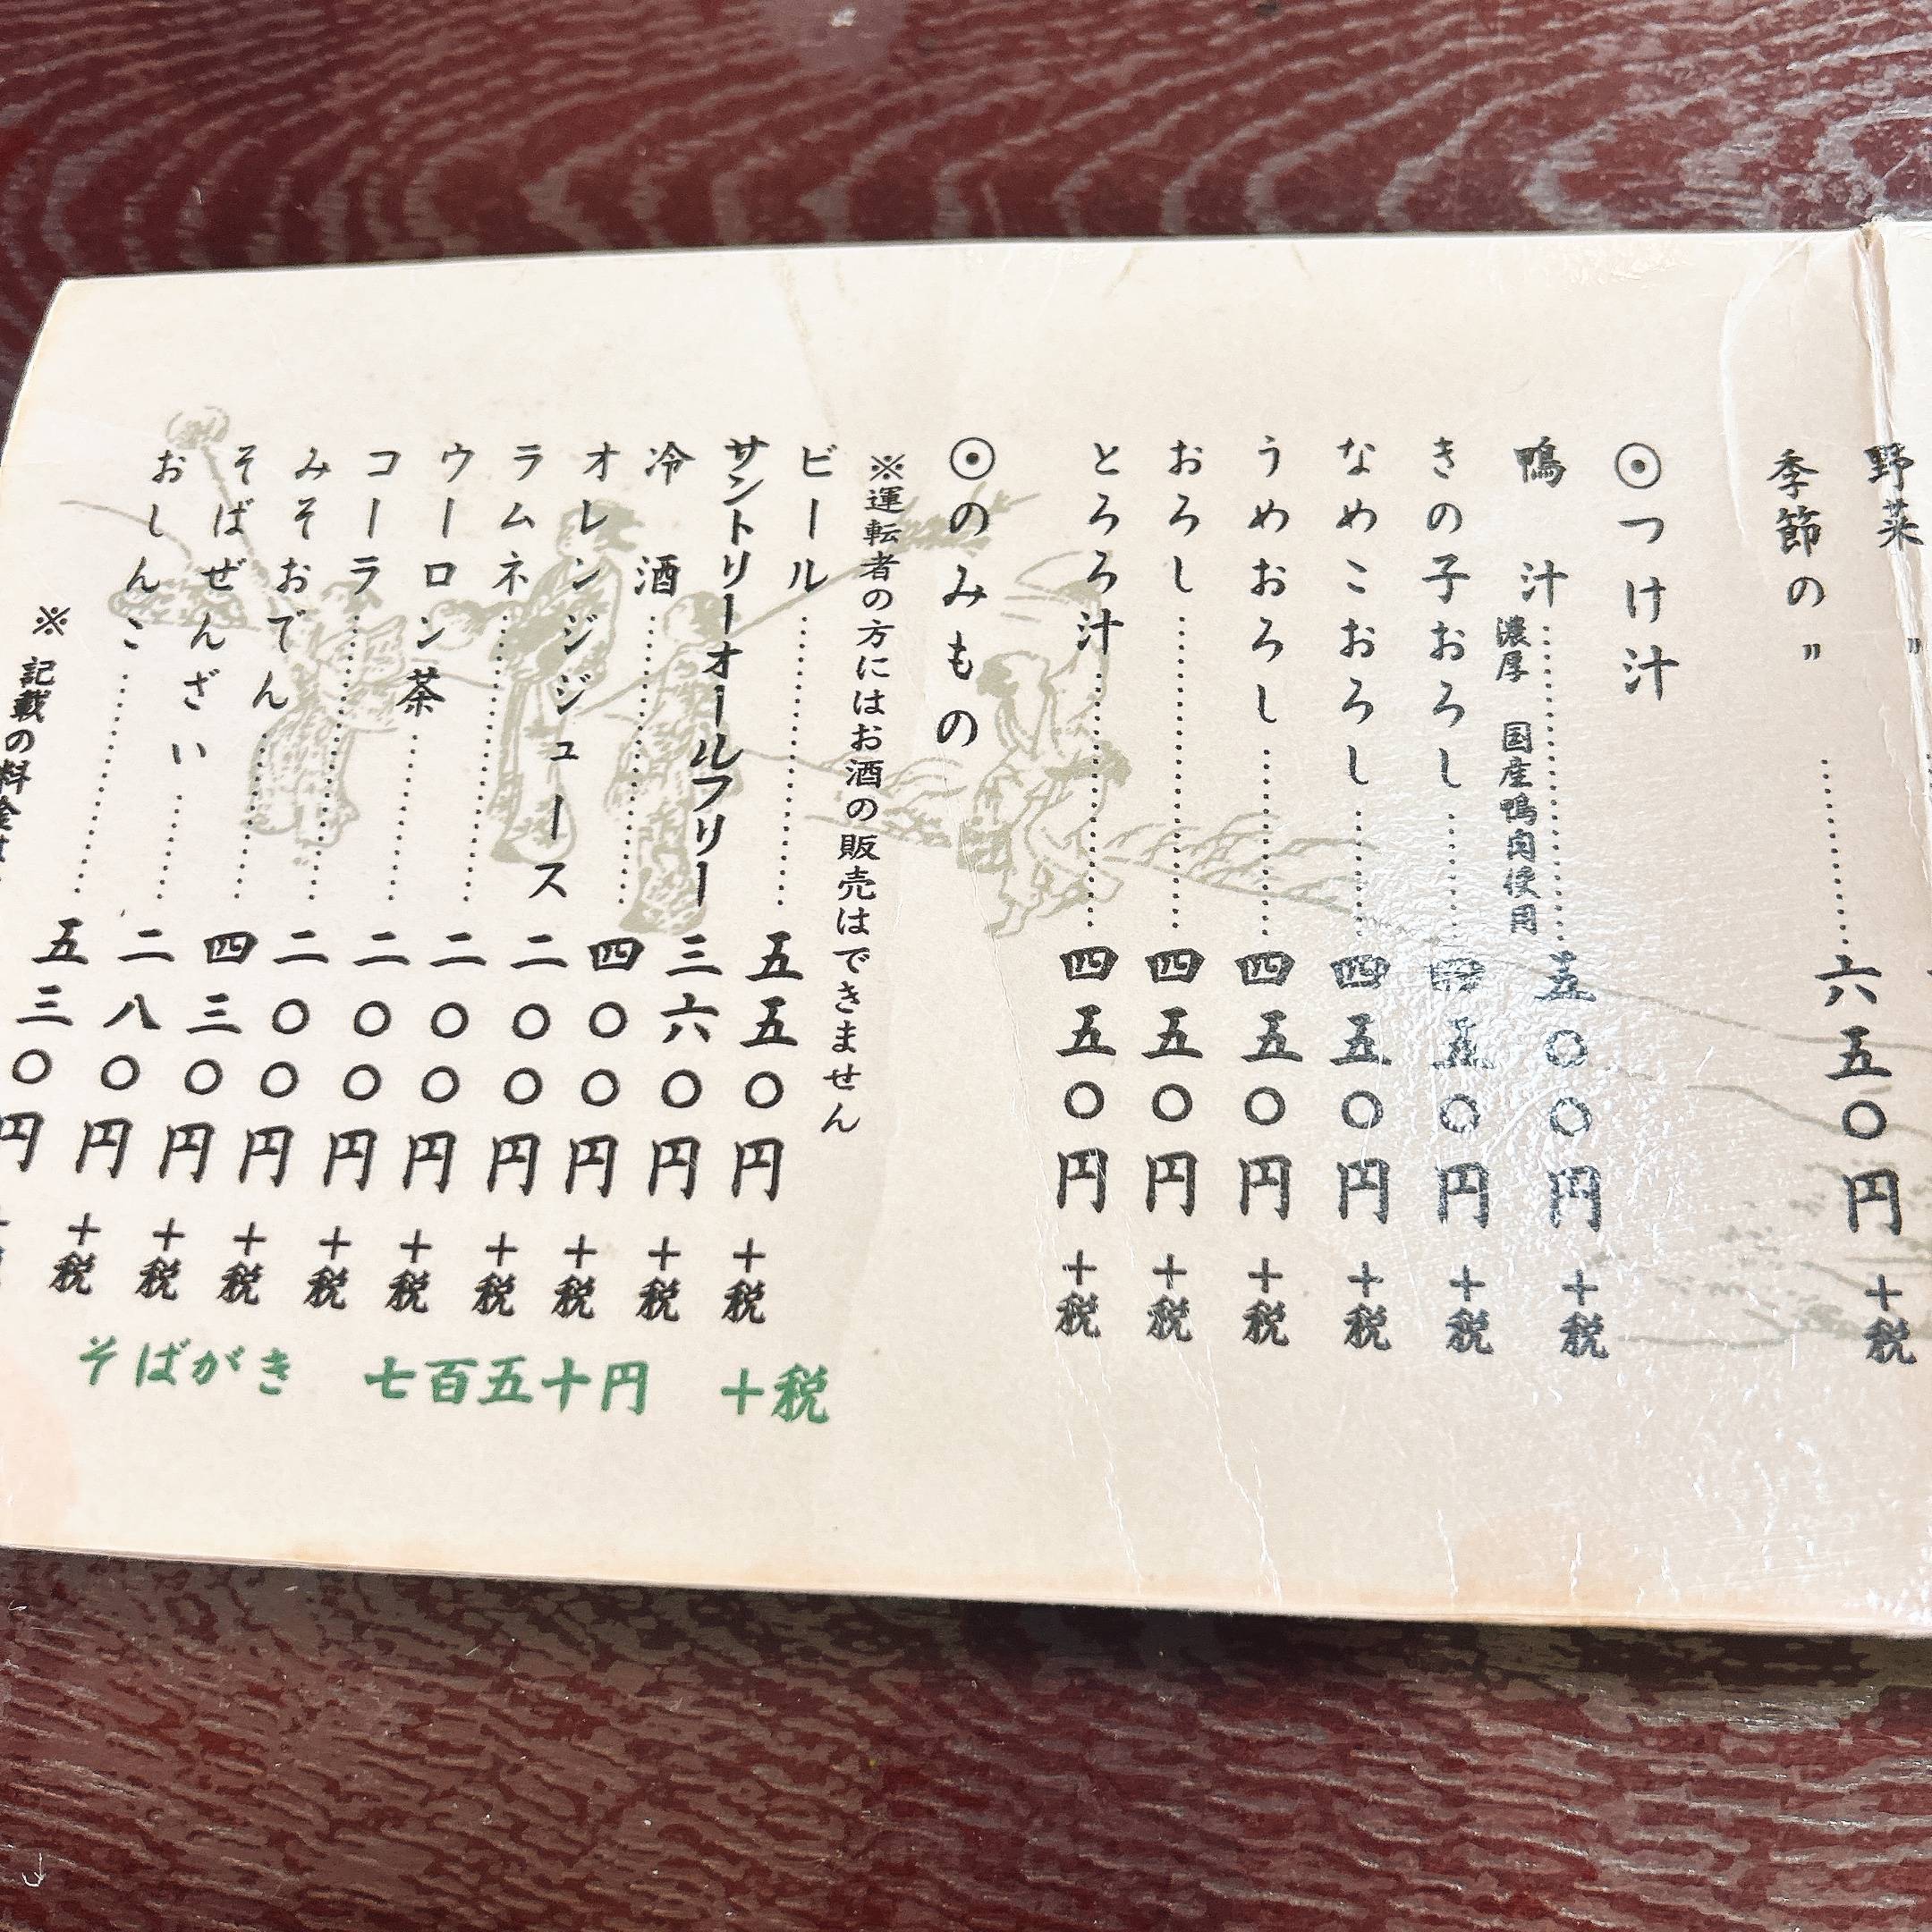 野菜〃
季節の〃……六五〇円 +税
◉つけ汁
鴨汁……五〇〇円 +税
濃厚 国産鴨肉使用
きの子おろし……四五〇円 +税
なめこおろし……四五〇円 +税
うめおろし……四五〇円 +税
おろし……四五〇円 +税
とろろ汁……四五〇円 +税
◉のみもの
※運転者の方にはお酒の販売はできません
ビール……五五〇円 +税
サントリーオールフリー 三六〇円 +税
冷酒……四〇〇円 +税
オレンジジュース 二〇〇円 +税
ラムネ……二〇〇円 +税
ウーロン茶……二〇〇円 +税
コーラ……二〇〇円 +税
みそおでん……四三〇円 +税
そばぜんざい……二八〇円 +税
おしんこ……五三〇円
※記載の料金は
そばがき 七百五十円 +税